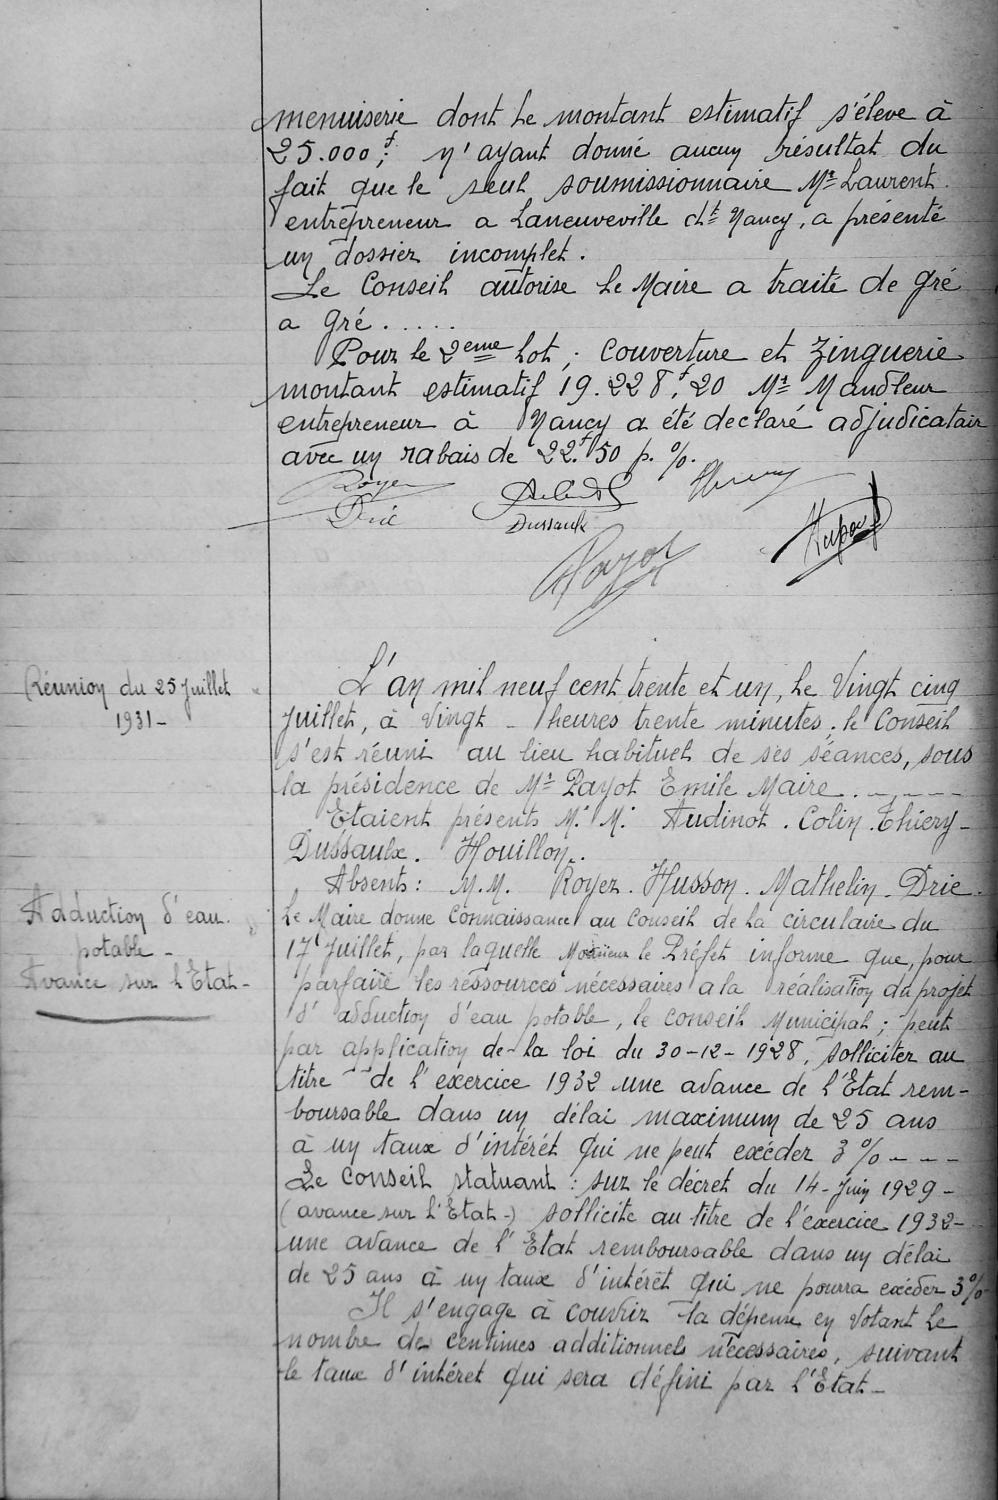 menuiserie dont le montant estimatif s'éleve à
25.000f; n'ayant donné aucun résultat du
fait que le seul soumissionnaire Mr Laurent.
entrepreneur a Laneuveville dt Nancy, a présenté
un dossier incomplet.
Le Conseil autorise le Maire a traité de gré
a gré.....
Pour le 2eme lot; couverture et Zinguerie
montant estimatif 19.228f,20 Mr Mandleur
entrepreneur à Nancy a été declaré adjudicatair
avec un rabais de 22.f50 p.%.
Royer
Drié
Dussaulx
Payot
Réunion du 25 Juillet
1931-
L'an mil neuf cent trente et un, le Vingt cinq
Juillet, à Vingt - heures trente minutes; le Conseil
s'est réuni au lieu habituel de ses séances, sous
la présidence de Mr Payot Emile Maire.----
Etaient présents M.M. Audinot. Colin. Thiery-
Dussaulx. Houillon.
Absents: M.M. Royer. Husson. Mathelin. Drie.
Adduction d'eau.
potable-
Avance sur l'Etat-
Le Maire donne connaissance au Conseil de la circulaire du
17 Juillet, par laquelle Monsieur le Préfet informe que, pour
parfaire les ressources nécessaires a la réalisation du projet
d'adduction d'eau potable, le conseil Municipal; peut
par application de la loi du 30-12-1928, solliciter au
titre de l'exercice 1932 une avance de l'Etat rem-
boursable dans un délai maximum de 25 ans
à un taux d'intérét qui ne peut excéder 3%---
Le Conseil statuant: sur le décret du 14-Juin 1929-
(avance sur l'Etat-) sollicite au titre de l'exercice 1932-
une avance de l'Etat remboursable dans un délai
de 25 ans à un taux d'intérét qui ne pourra excéder 3%-
Il s'engage à couvrir la dépense en votant le
nombre de centimes additionnels nécessaires, suivant
le taux d'intéret qui sera défini par l'Etat-